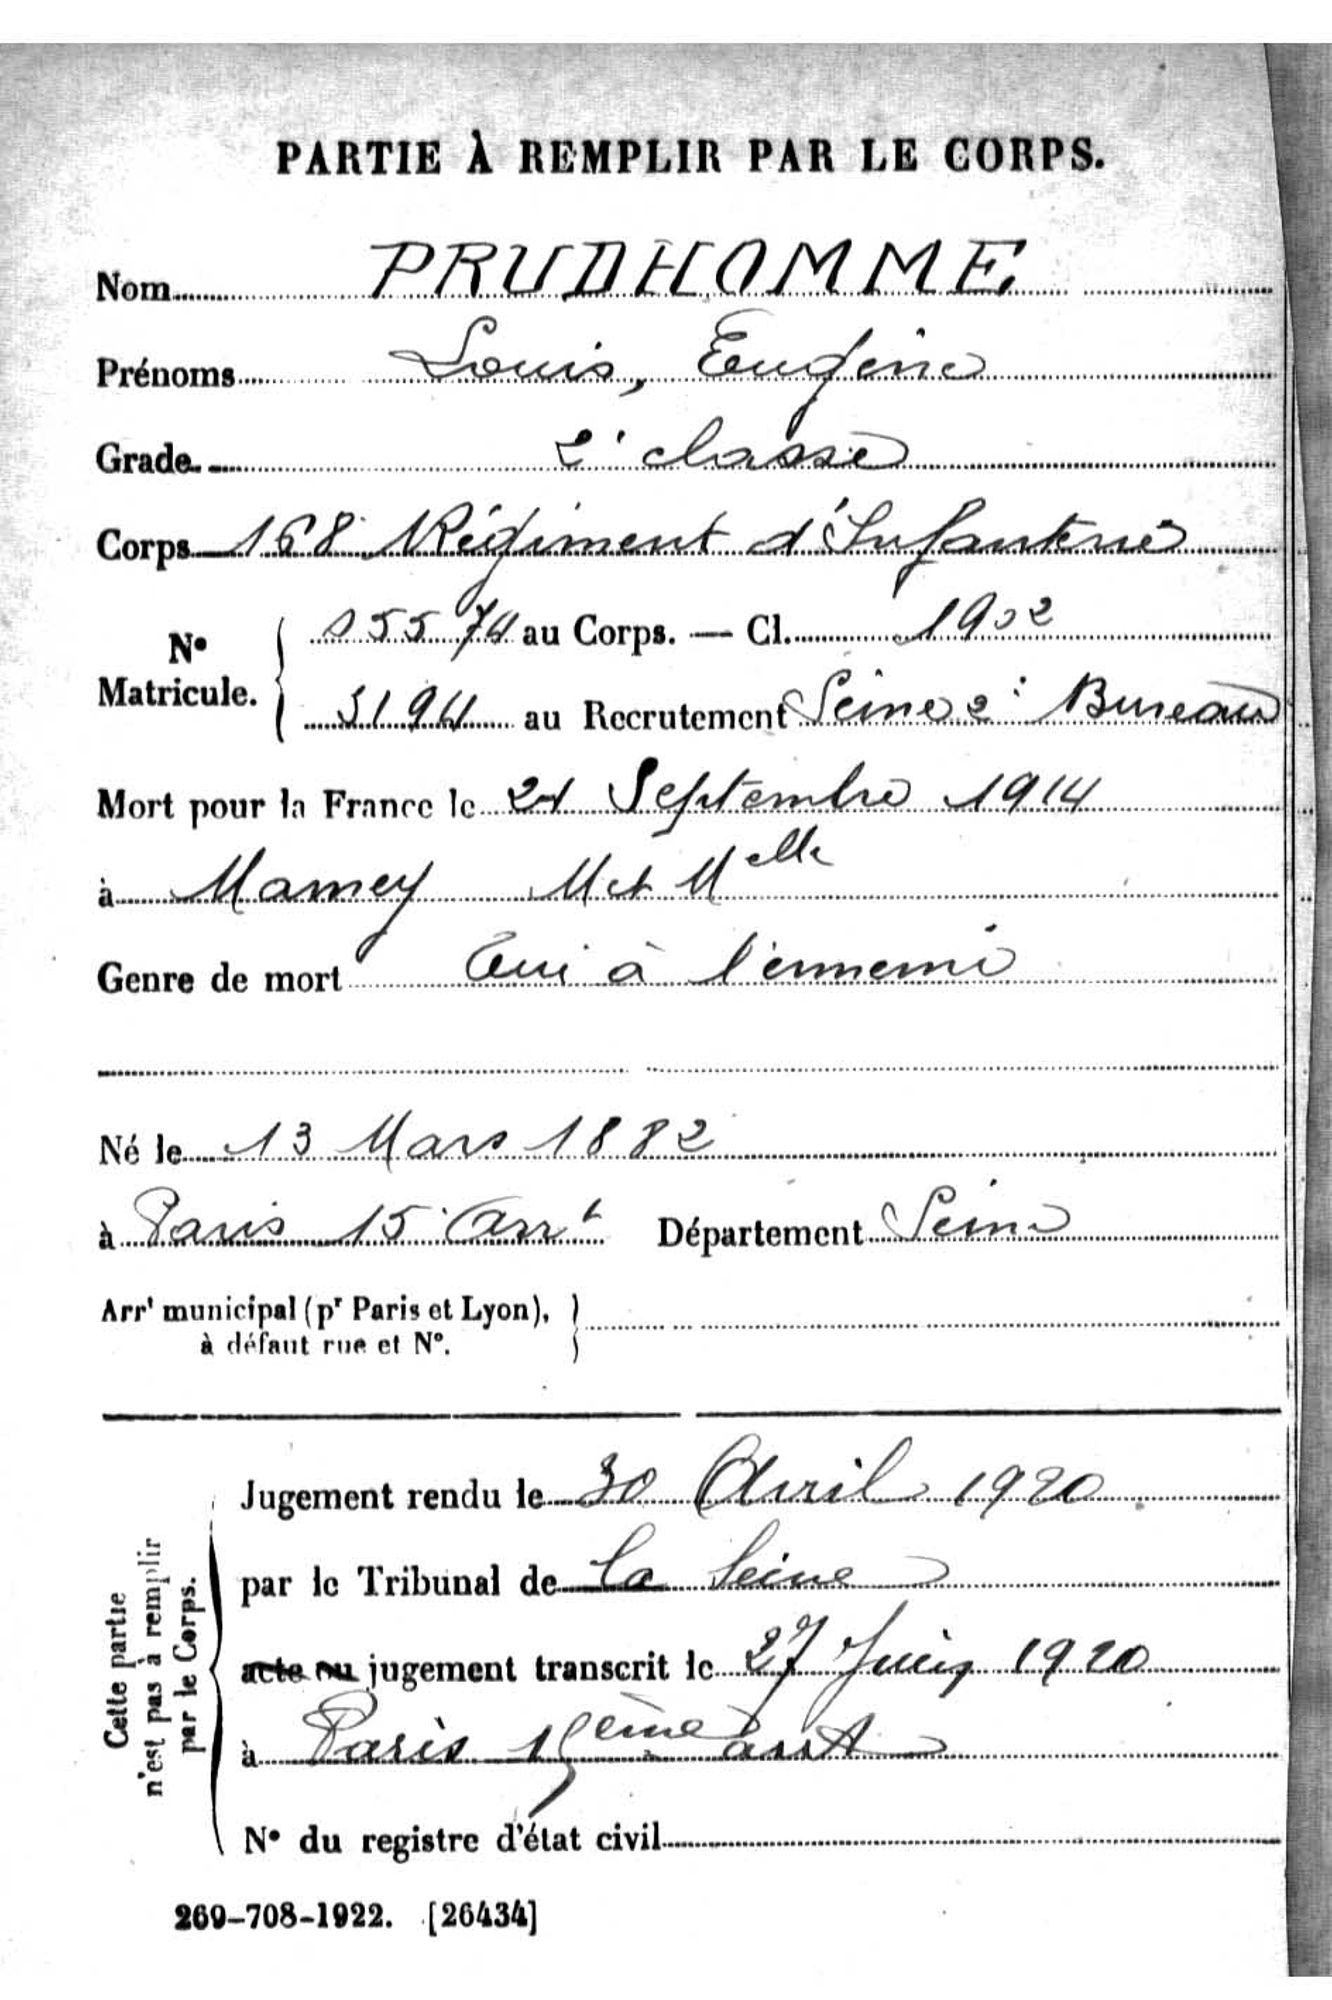 PARTIE À REMPLIR PAR LE CORPS.
Nom PRUDHOMME
Prénoms Louis, Eugène
Grade 2e classe
Corps 168e Régiment d'Infanterie
No Matricule. 05574 au Corps. — Cl. 1902
3194 au Recrutement Seine 2e Bureau
Mort pour la France le 21 Septembre 1914
à Mamey M et Melle
Genre de mort Tué à l'ennemi
Né le 13 Mars 1882
à Paris 15e Arrt Département Seine
Arrt municipal (pr Paris et Lyon),
à défaut rue et No.
Cette partie n'est pas à remplir par le Corps.
Jugement rendu le 30 Avril 1920
par le Tribunal de la Seine
acte ou jugement transcrit le 27 Juin 1920
à Paris 15ème arrt
No du registre d'état civil
269-708-1922. [26434]